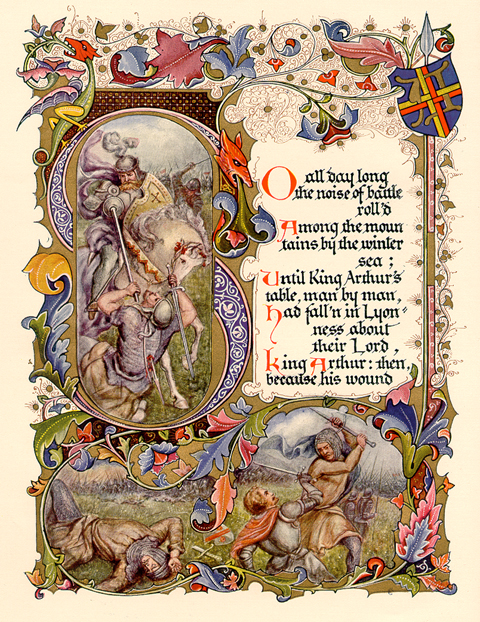 SO all day long
the noise of battle
roll'd
Among the moun
tains by the winter
sea ;
Until King Arthur's
table, man by man,
had fall'n in Lyon=
ness about
their Lord,
King Arthur: then,
because his wound